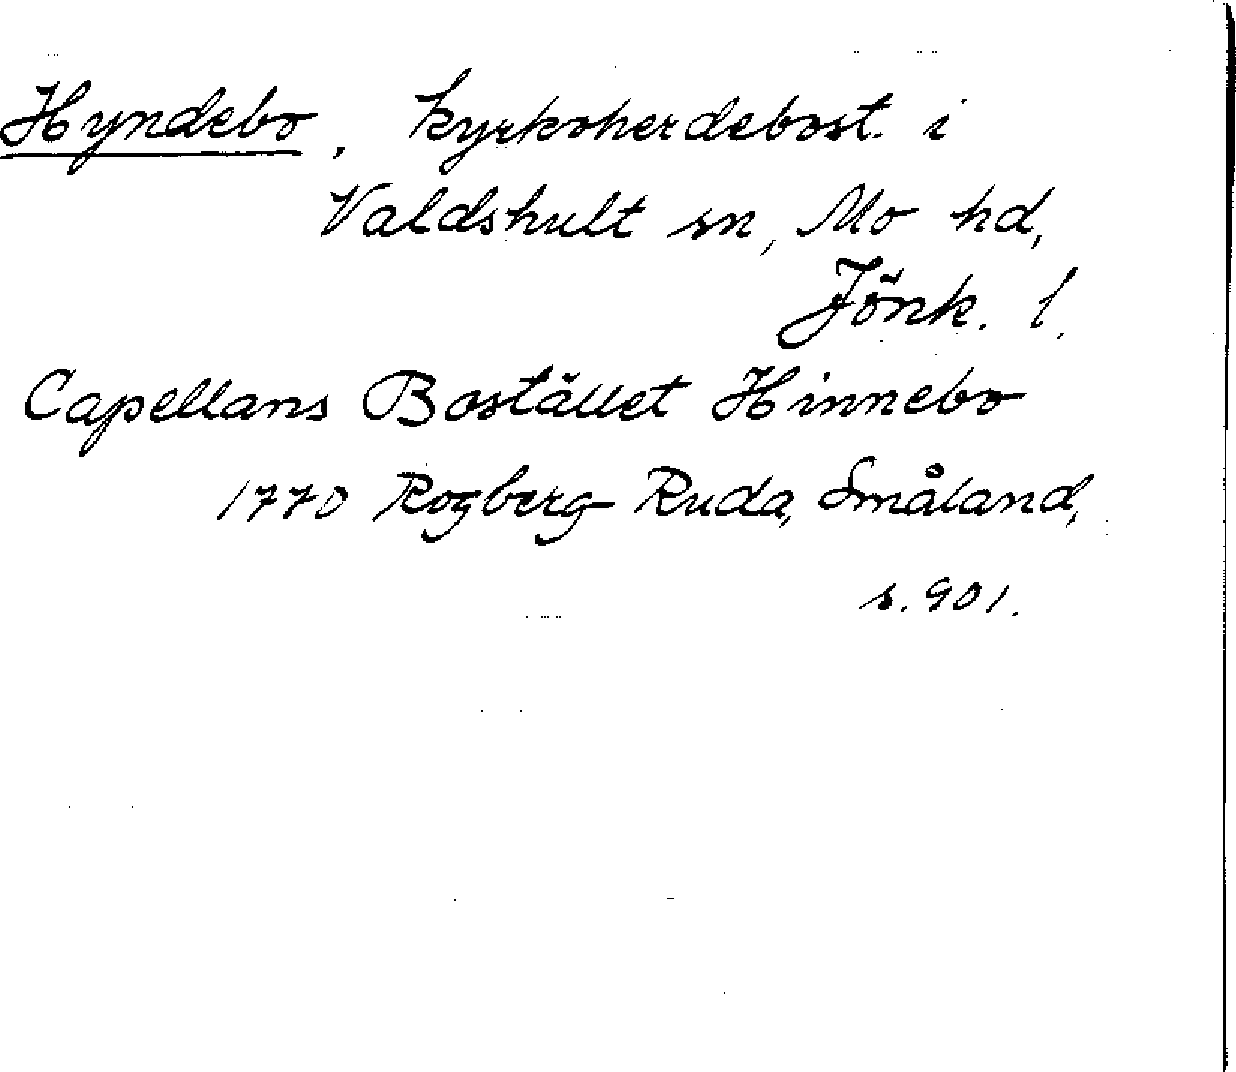 Hyndebo, kyrkoherdebost. i
Valdshult sn, Mo hd,
Jönk. l.
Capellans Bostället Hinnebo
1770 Rogberg-Ruda, Småland,
s. 901.